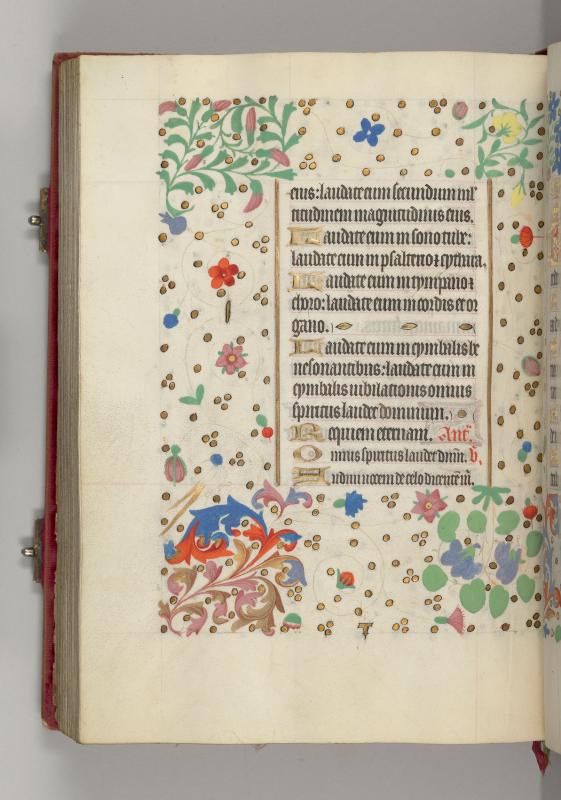 eius: laudate eum secundum ml
titudinem magnitudinis eius.
Laudate eum in sono tube:
laudate eum in psalterio ⁊ cythara.
Laudate eum in tympano ⁊
choro: laudate eum in cordis et or
gano.
Laudate eum in cymbalis be
nesonantibus: laudate eum in
cymbalis iubilationis omnis
spiritus laudet dominum.
Requiem eternam. Ant.
Omnis spiritus laudet dnm. v.
Audivi vocem de celo dicentem.